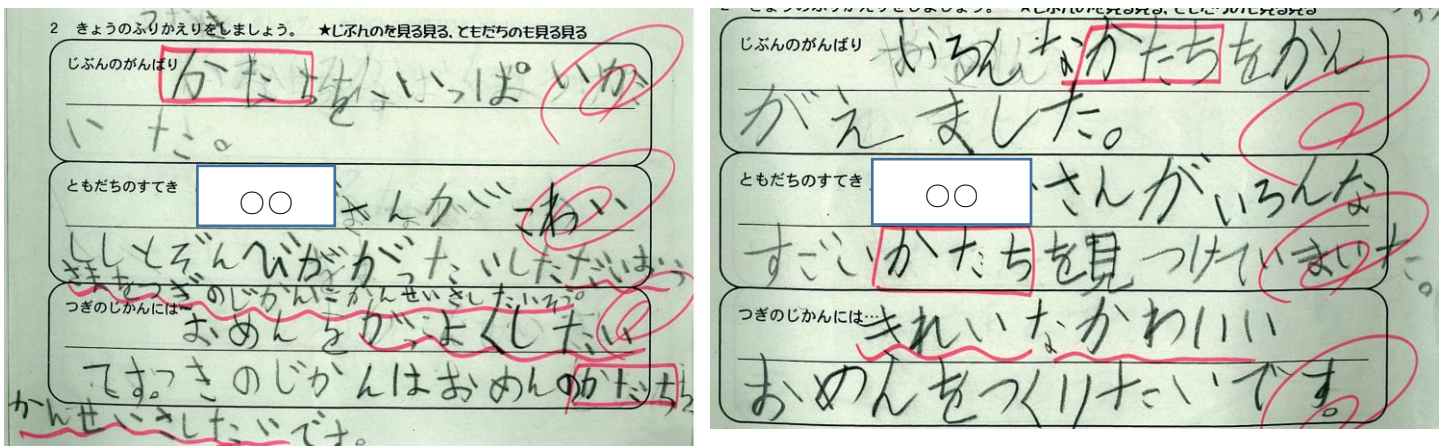 2 きょうのふりかえりをしましょう。 ★じぶんのを見る見る、ともだちのも見る見る
じぶんのがんばり
かたちを、いっぱいか
いた。
ともだちのすてき
○○
さんが こわい
ししとぞんびががったいしただいまお
さまをつぎのじかんにかんせいさしたいそう。
つぎのじかんには…
おめんをがっよくしたい
です。つきのじかんはおめんのかたちを
かんせいさしたいです。
じぶんのがんばり
いろんなかたちをかん
がえました。
ともだちのすてき
○○
さんがいろんな
すごいかたちを見つけていまいた。
つぎのじかんには…
きれいなかわいい
おめんをつくりたいです。